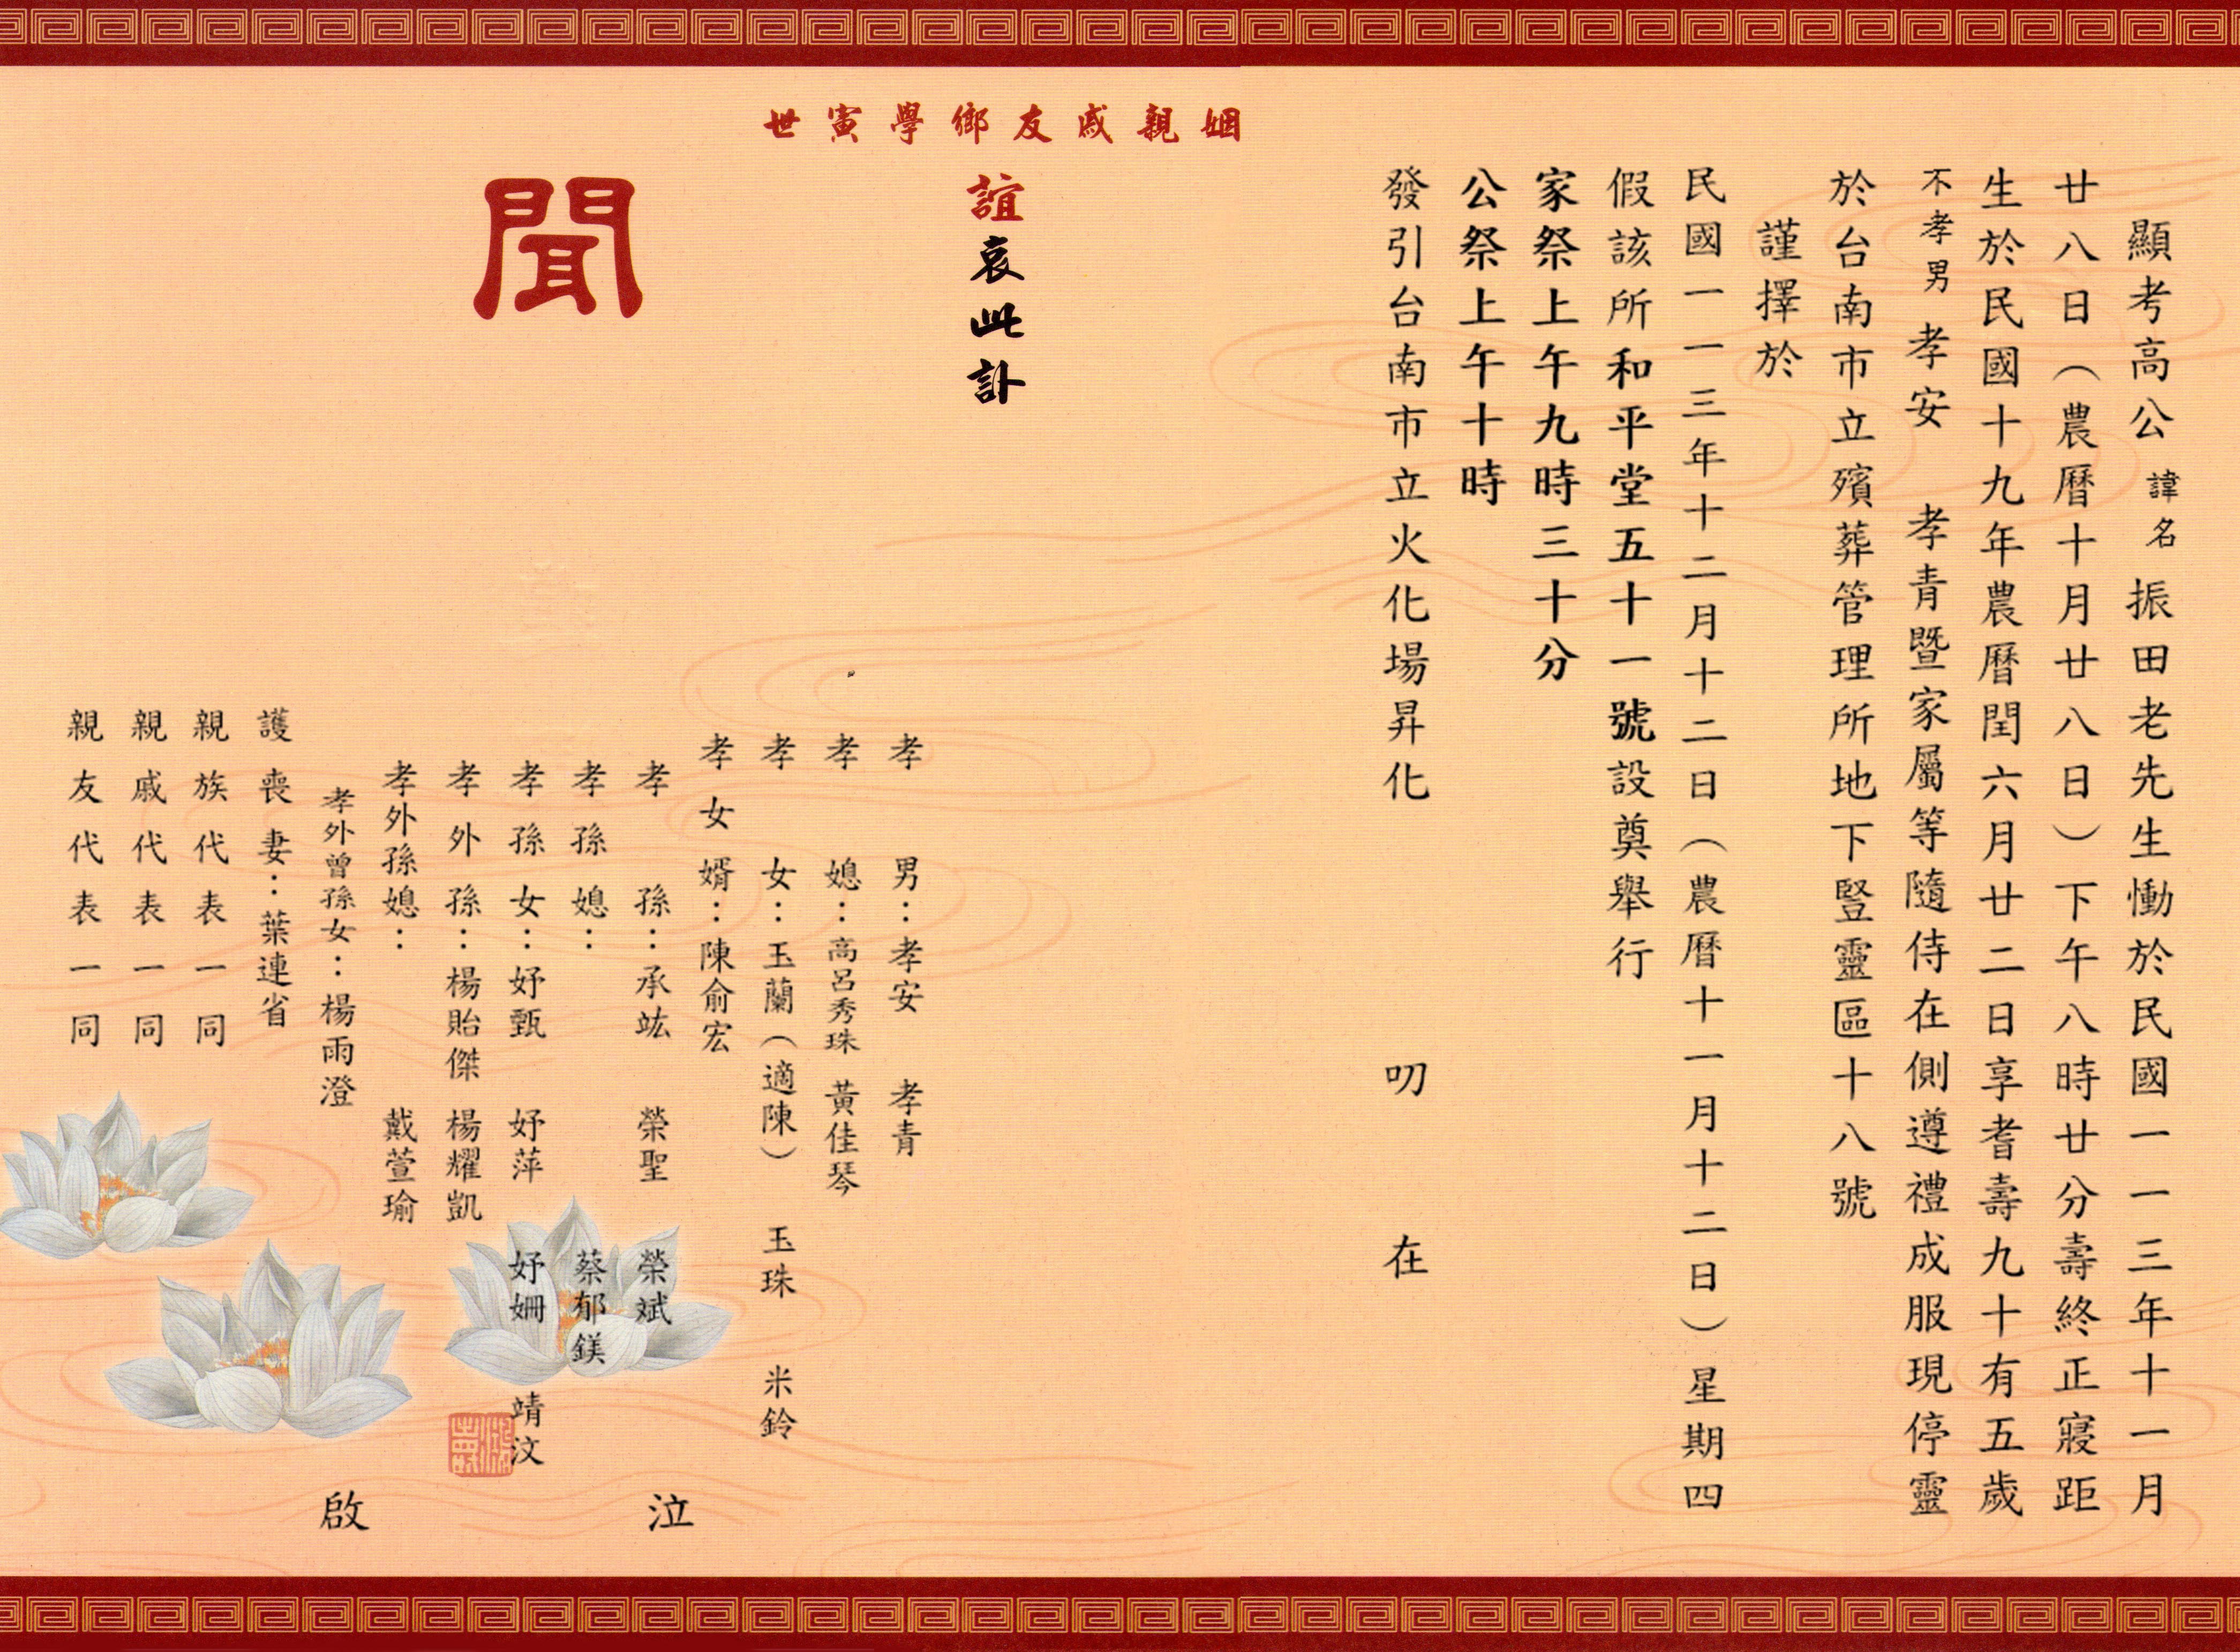 顯考高公諱名振田老先生慟於民國一一三年十一月
廿八日（農曆十月廿八日）下午八時廿分壽終正寢距
生於民國十九年農曆閏六月廿二日享耆壽九十有五歲
不孝男孝安　孝青暨家屬等隨侍在側遵禮成服現停靈
於台南市立殯葬管理所地下豎靈區十八號
謹擇於
民國一一三年十二月十二日（農曆十一月十二日）星期四
假該所和平堂五十一號設奠舉行
家祭上午九時三十分
公祭上午十時
發引台南市立火化場昇化
叨在
姻親戚友鄉學寅世
誼哀此訃
聞
孝男：孝安　孝青
孝媳：高呂秀珠　黃佳琴
孝女：玉蘭（適陳）　玉珠　米鈴
孝女婿：陳俞宏
孝孫：承竑　榮聖　榮斌
孝孫媳：蔡郁鎂
孝孫女：妤甄　妤萍　妤姍　靖汶
孝外孫：楊貽傑　楊耀凱
孝外孫媳：戴萱瑜
孝外曾孫女：楊雨澄
護喪妻：葉連省
親族代表一同
親戚代表一同
親友代表一同
泣啟